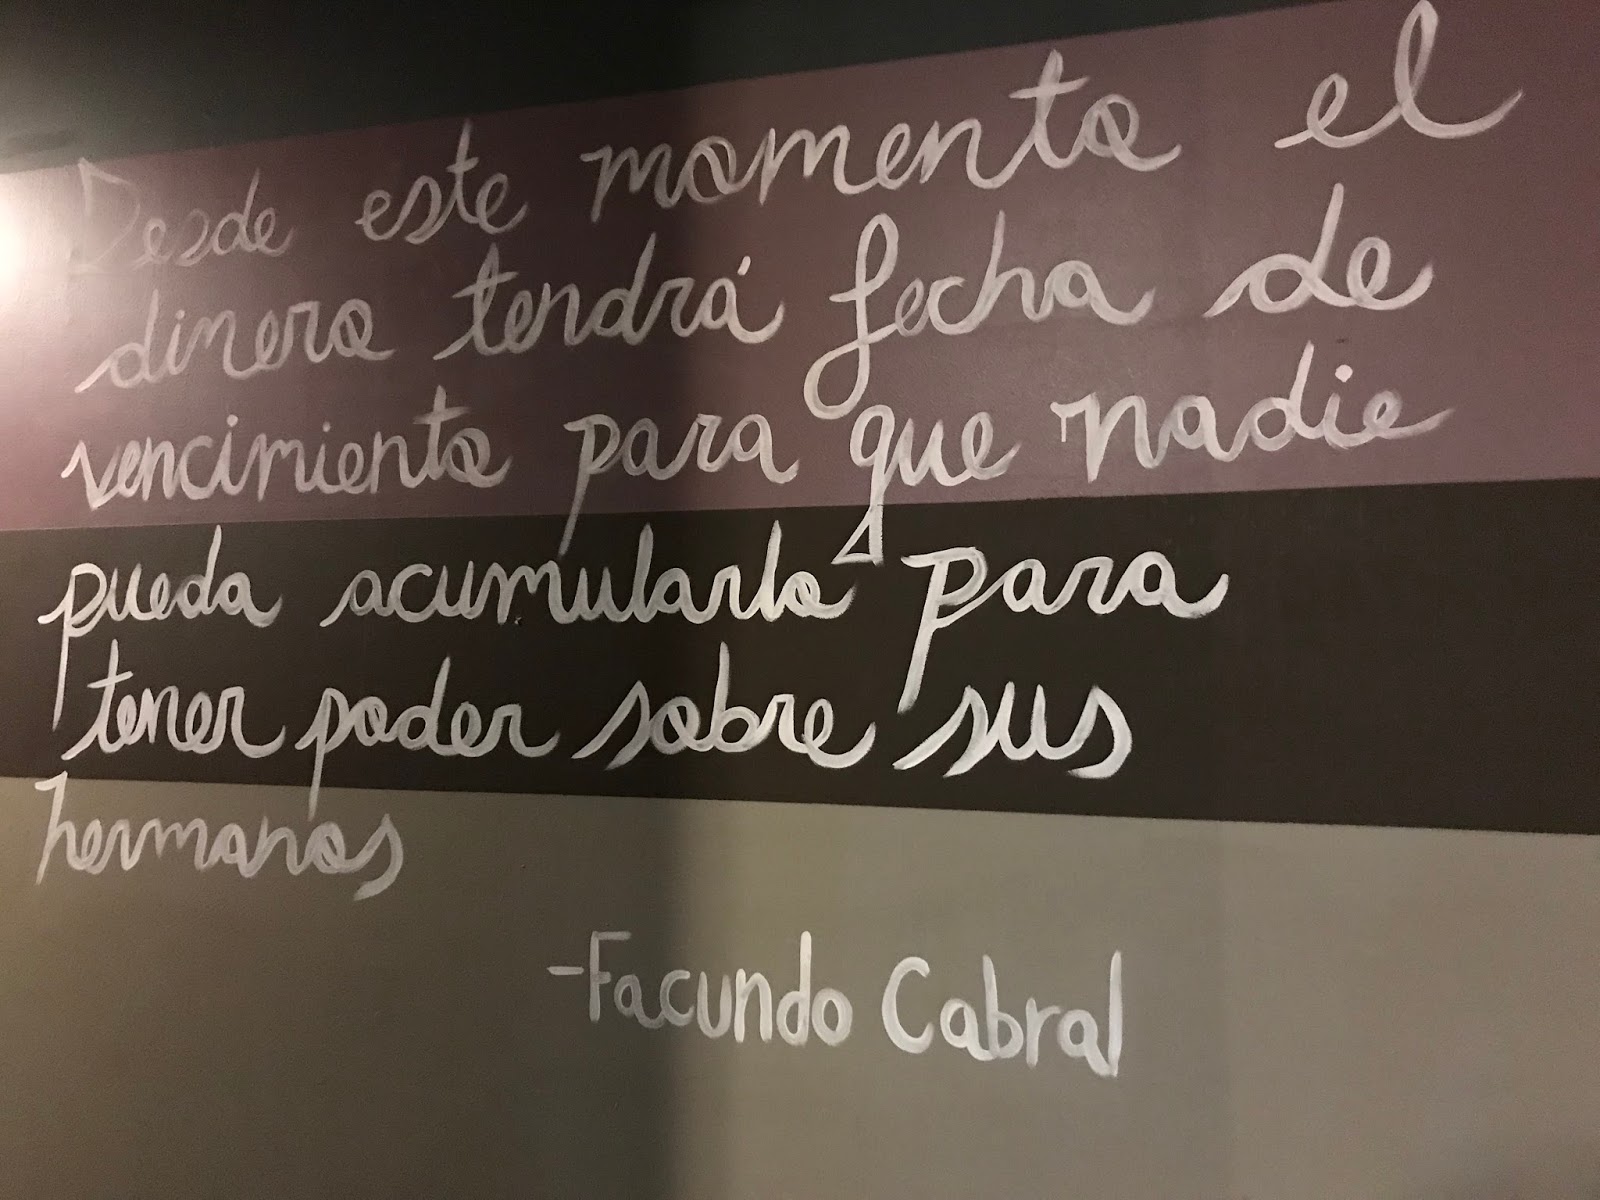 Desde este momento el
dinero tendrá fecha de
vencimiento para que nadie
pueda acumularlo para
tener poder sobre sus
hermanos
-Facundo Cabral